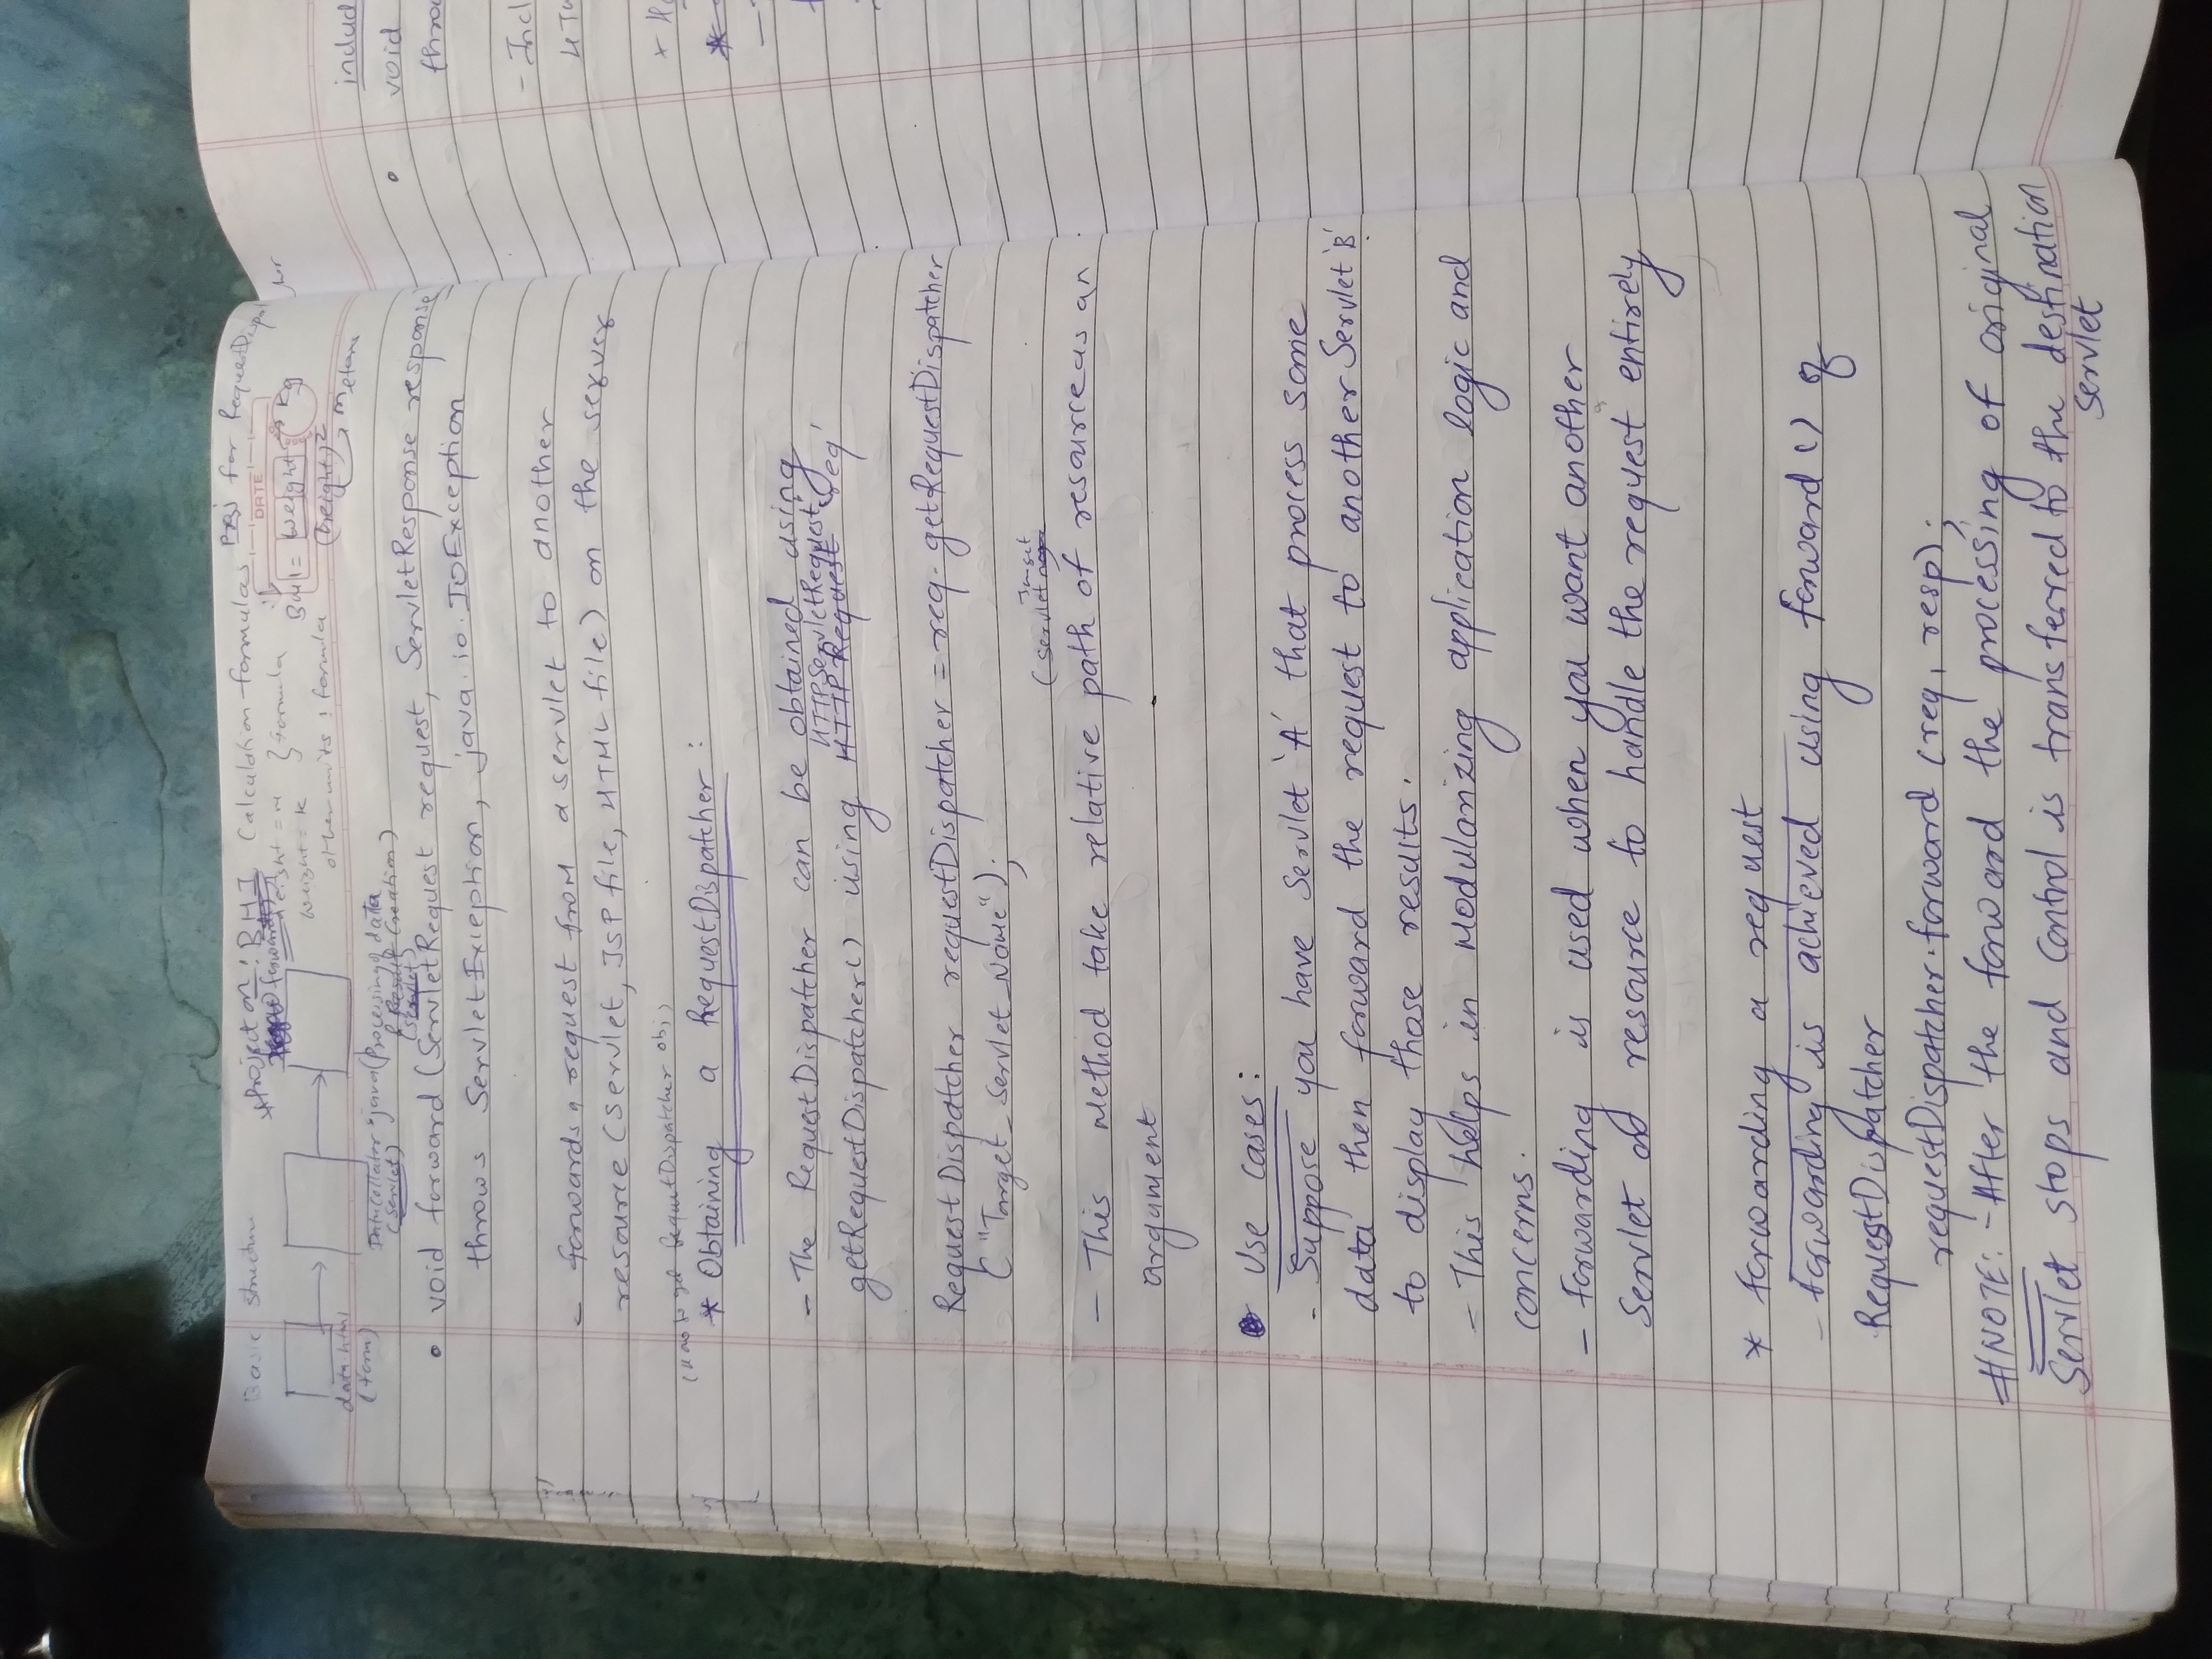 Basic structure
*Project on: BMI Calculation formulas, Proj for RequestDispatcher
height = m } formula
weight = k
other units : formula
DATE
BMI = weight → kg
(height)² → meters
data.html
(form)
DataCollector.java
(Servlet)
(Processing of data
& Result Creation)
(servlet)
• void forward (ServletRequest request, ServletResponse response
throws ServletException, java.io.IOException
- forwards a request from a servlet to another
resource (servlet, JSP file, HTML file) on the server
(How to get RequestDispatcher obj)
* Obtaining a RequestDispatcher :
- The RequestDispatcher can be obtained using
HTTPServletRequest
getRequestDispatcher() using HTTP Request 'req'
RequestDispatcher requestDispatcher = req.getRequestDispatcher
("Target_Servlet_Name");
Target
(servlet
- This method take relative path of resource as an
argument
Use cases:
- Suppose you have Servlet 'A' that process some
data then forward the request to another Servlet 'B'
to display those results.
- This helps in modularizing application logic and
concerns.
- forwarding is used when you want another
Servlet or resource to handle the request entirely
* forwarding a request
- forwarding is achieved using forward() of
RequestDispatcher
requestDispatcher.forward (req, resp);
#NOTE: - After the forward the processing of original
Servlet stops and control is transferred to the destination
servlet
includ
• void
thro
- Incl
HTM